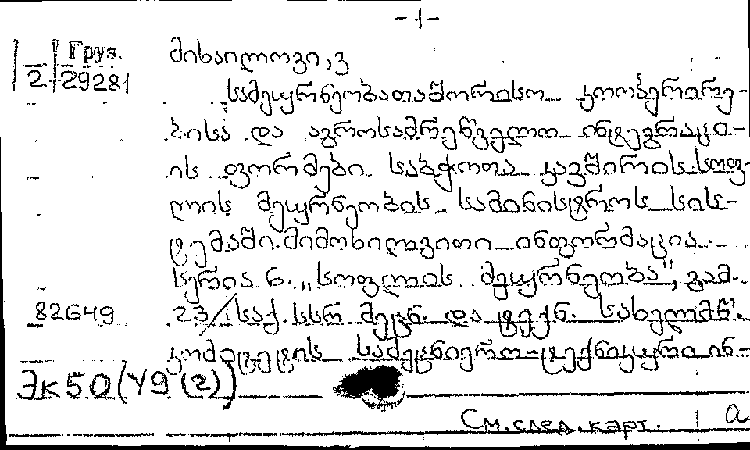 -1-
2 Груз. 29281
მიხაილოვი, ვ
სამეურნეობათაშორისო კოოპერირე-
ბისა და აგროსამრეწველო ინტეგრაცი-
ის ფორმები საბჭოთა კავშირის სოფ-
ლის მეურნეობის სამინისტროს სის-
ტემაში. მიმოხილვითი ინფორმაცია.
სერია 6. „სოფლის მეურნეობა", გამ.
82649 23/ საქ. სსრ მეცნ. და ტექნ. სახელმწ.
კომიტეტის სამეცნიერო-ტექნიკური ინ-
Эк50(У9(2))
См. след. карт. а